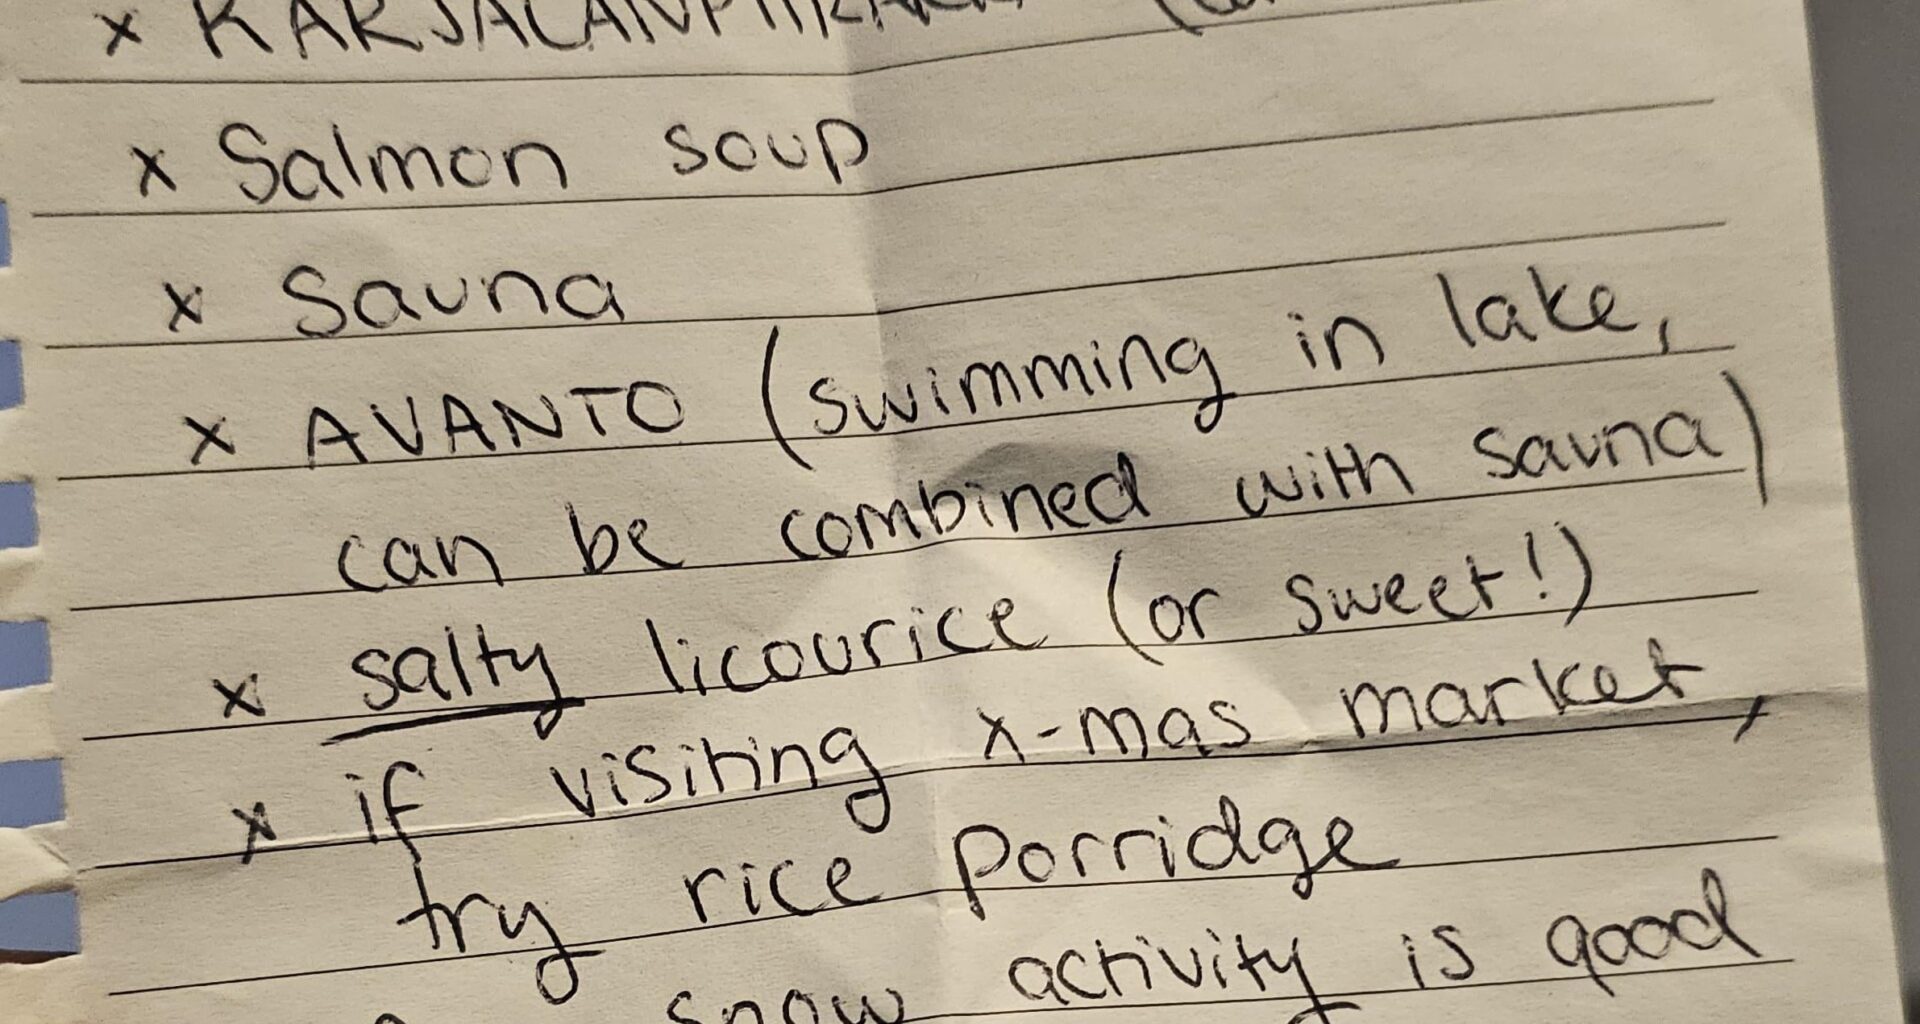 x
x Salmon soup
x Sauna
x AVANTO (swimming in lake,
can be combined with sauna)
x salty licourice (or sweet!)
x if visiting x-mas market,
try rice porridge
snow activity is good